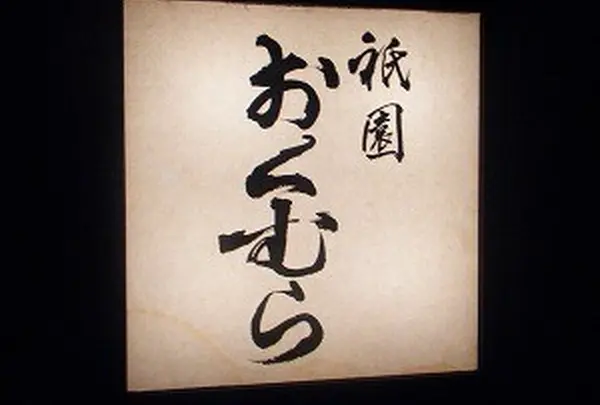 祇園
おくむら